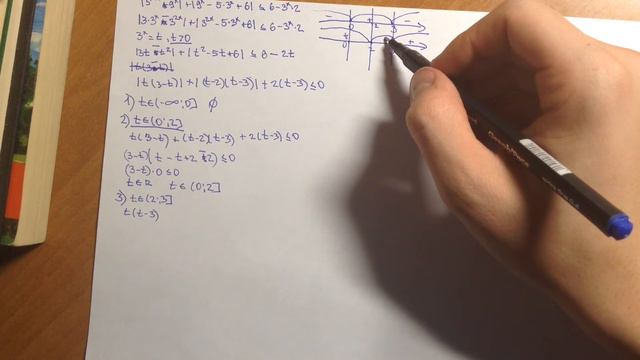 |3·3ˣ-3²ˣ|+|9ˣ-5·3ˣ+6| ≤ 6-3ˣ·2
3ˣ=t, t>0
|3t-t²|+|t²-5t+6| ≤ 6-2t
|t(3-t)|+|(t-2)(t-3)|+2(t-3)≤0
1) t∈(-∞;0] ∅
2) t∈(0;2]
t(3-t)+(t-2)(t-3)+2(t-3)≤0
(3-t)(t-t+2-2)≤0
(3-t)·0≤0
t∈R t∈(0;2]
3) t∈(2;3]
t(t-3)